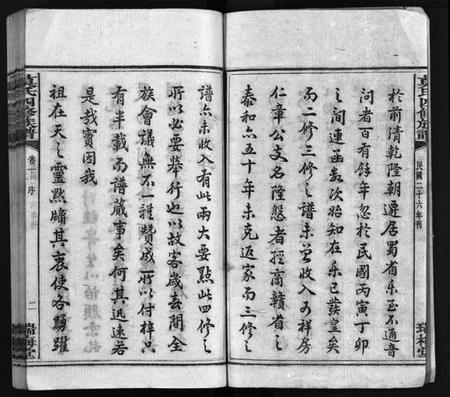 於前清乾隆朝遷居蜀省樂至不通音
問者百有餘年忽於民國丙寅丁卯
之間連函數次始知在樂已發皇矣
而二修三修之譜未曾收入如祥房
仁章公支名隆慇者經商贛省之
泰和亦五十年未克返家而三修之
譜亦未收入有此兩大要點此四修之
所以必要舉行也以故客歲去間全
族會議無不一種贊成所以付梓只
有半載而譜蕆事矣何其迅速若
是哉實因我
祖在天之靈默牖其衷使各踴躍
民國二十六年刊
卷一 序
四修族譜